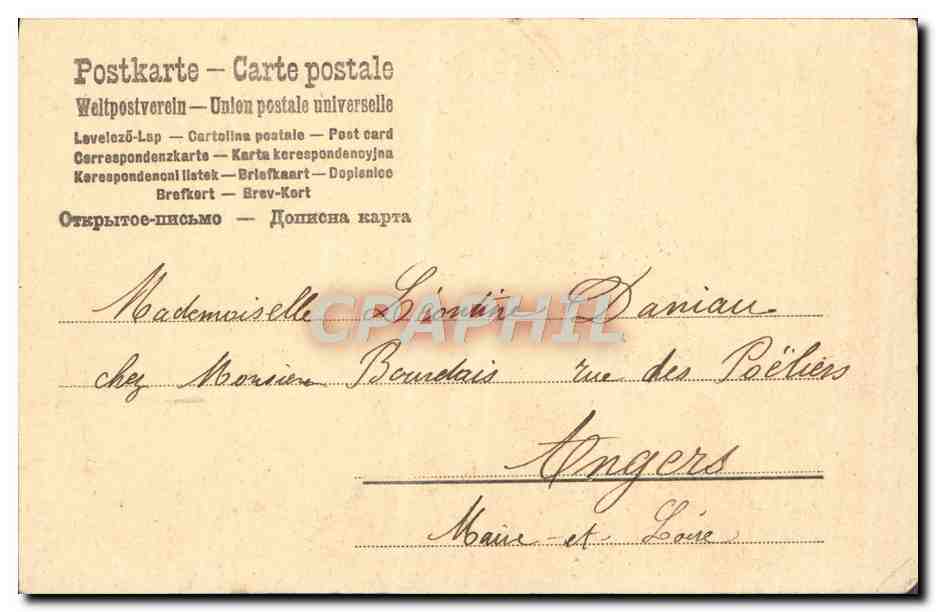 Postkarte – Carte postale
Weltpostverein — Union postale universelle
Levelező-Lap — Cartolina postale — Post card
Correspondenzkarte — Karta korespondencyjna
Korespondencni listek — Briefkaart — Dopisnice
Brefkort — Brev-Kort
Открытое-письмо — Дописна карта
Mademoiselle Léontine Daniau
chez Monsieur Bourdais rue des Poëliers
Angers
Maine-et-Loire
CPAPHIL